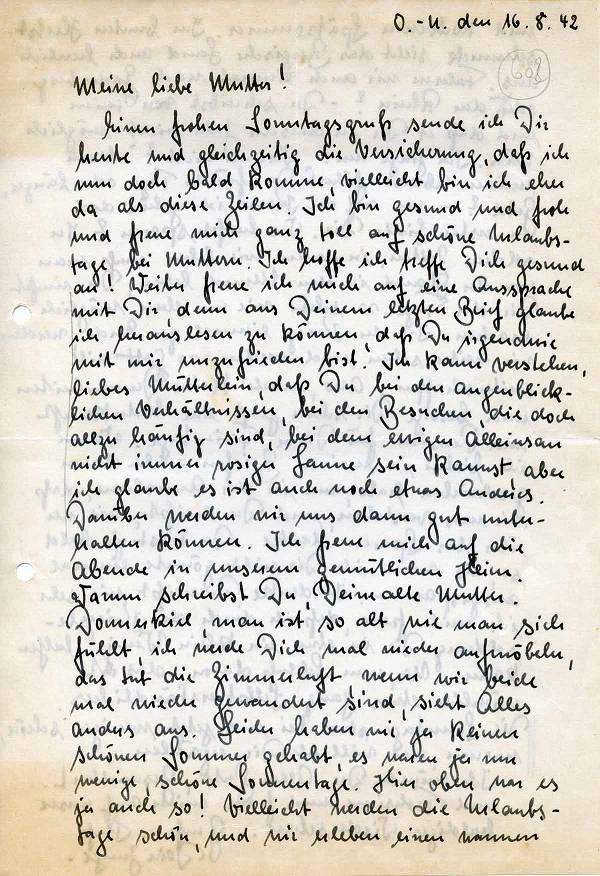 O.-U. den 16.8.42
Meine liebe Mutter!
Einen frohen Sonntagsgruß sende ich Dir
heute und gleichzeitig die Versicherung, daß ich
nun doch bald komme, vielleicht bin ich eher
da als diese Zeilen. Ich bin gesund und froh
und freue mich ganz toll auf schöne Urlaubs-
tage bei Muttern. Ich hoffe ich treffe Dich gesund
an! Weiter freue ich mich auf eine Aussprache
mit Dir denn aus Deinem letzten Brief glaube
ich herauslesen zu können, daß Du irgendwie
mit mir unzufrieden bist. Ich kann verstehen,
liebes Mütterlein, daß Du bei den augenblick-
lichen Verhältnissen, bei den Besuchen, die doch
allzu häufig sind, bei dem ewigen Alleinsan
nicht immer rosiger Laune sein kannst, aber
ich glaube es ist auch noch etwas Anderes.
Darüber werden wir uns dann gut unter-
halten können. Ich freue mich auf die
Abende in unserem gemütlichen Heim.
Warum schreibst Du, Deine alte Mutter.
Donnerkiel, man ist, so alt wie man sich
fühlt, ich werde Dich mal wieder aufmöbeln,
das tut die Zimmerluft wenn wir beide
mal wieder gewandert sind, sieht Alles
anders aus. Leider haben wir ja keinen
schönen Sommer gehabt, es waren ja nur
wenige, schöne Sonnentage. Hier oben war es
ja auch so! Vielleicht werden die Urlaubs-
tage schön, und wir erleben einen warmen